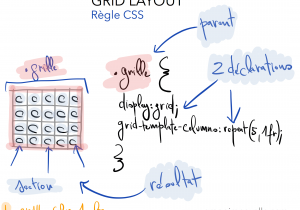 GRID LAYOUT
Règle CSS
parent
.grille
.grille {
2 déclarations
display: grid;
grid-template-columns: repeat(5, 1fr);
}
section
résultat